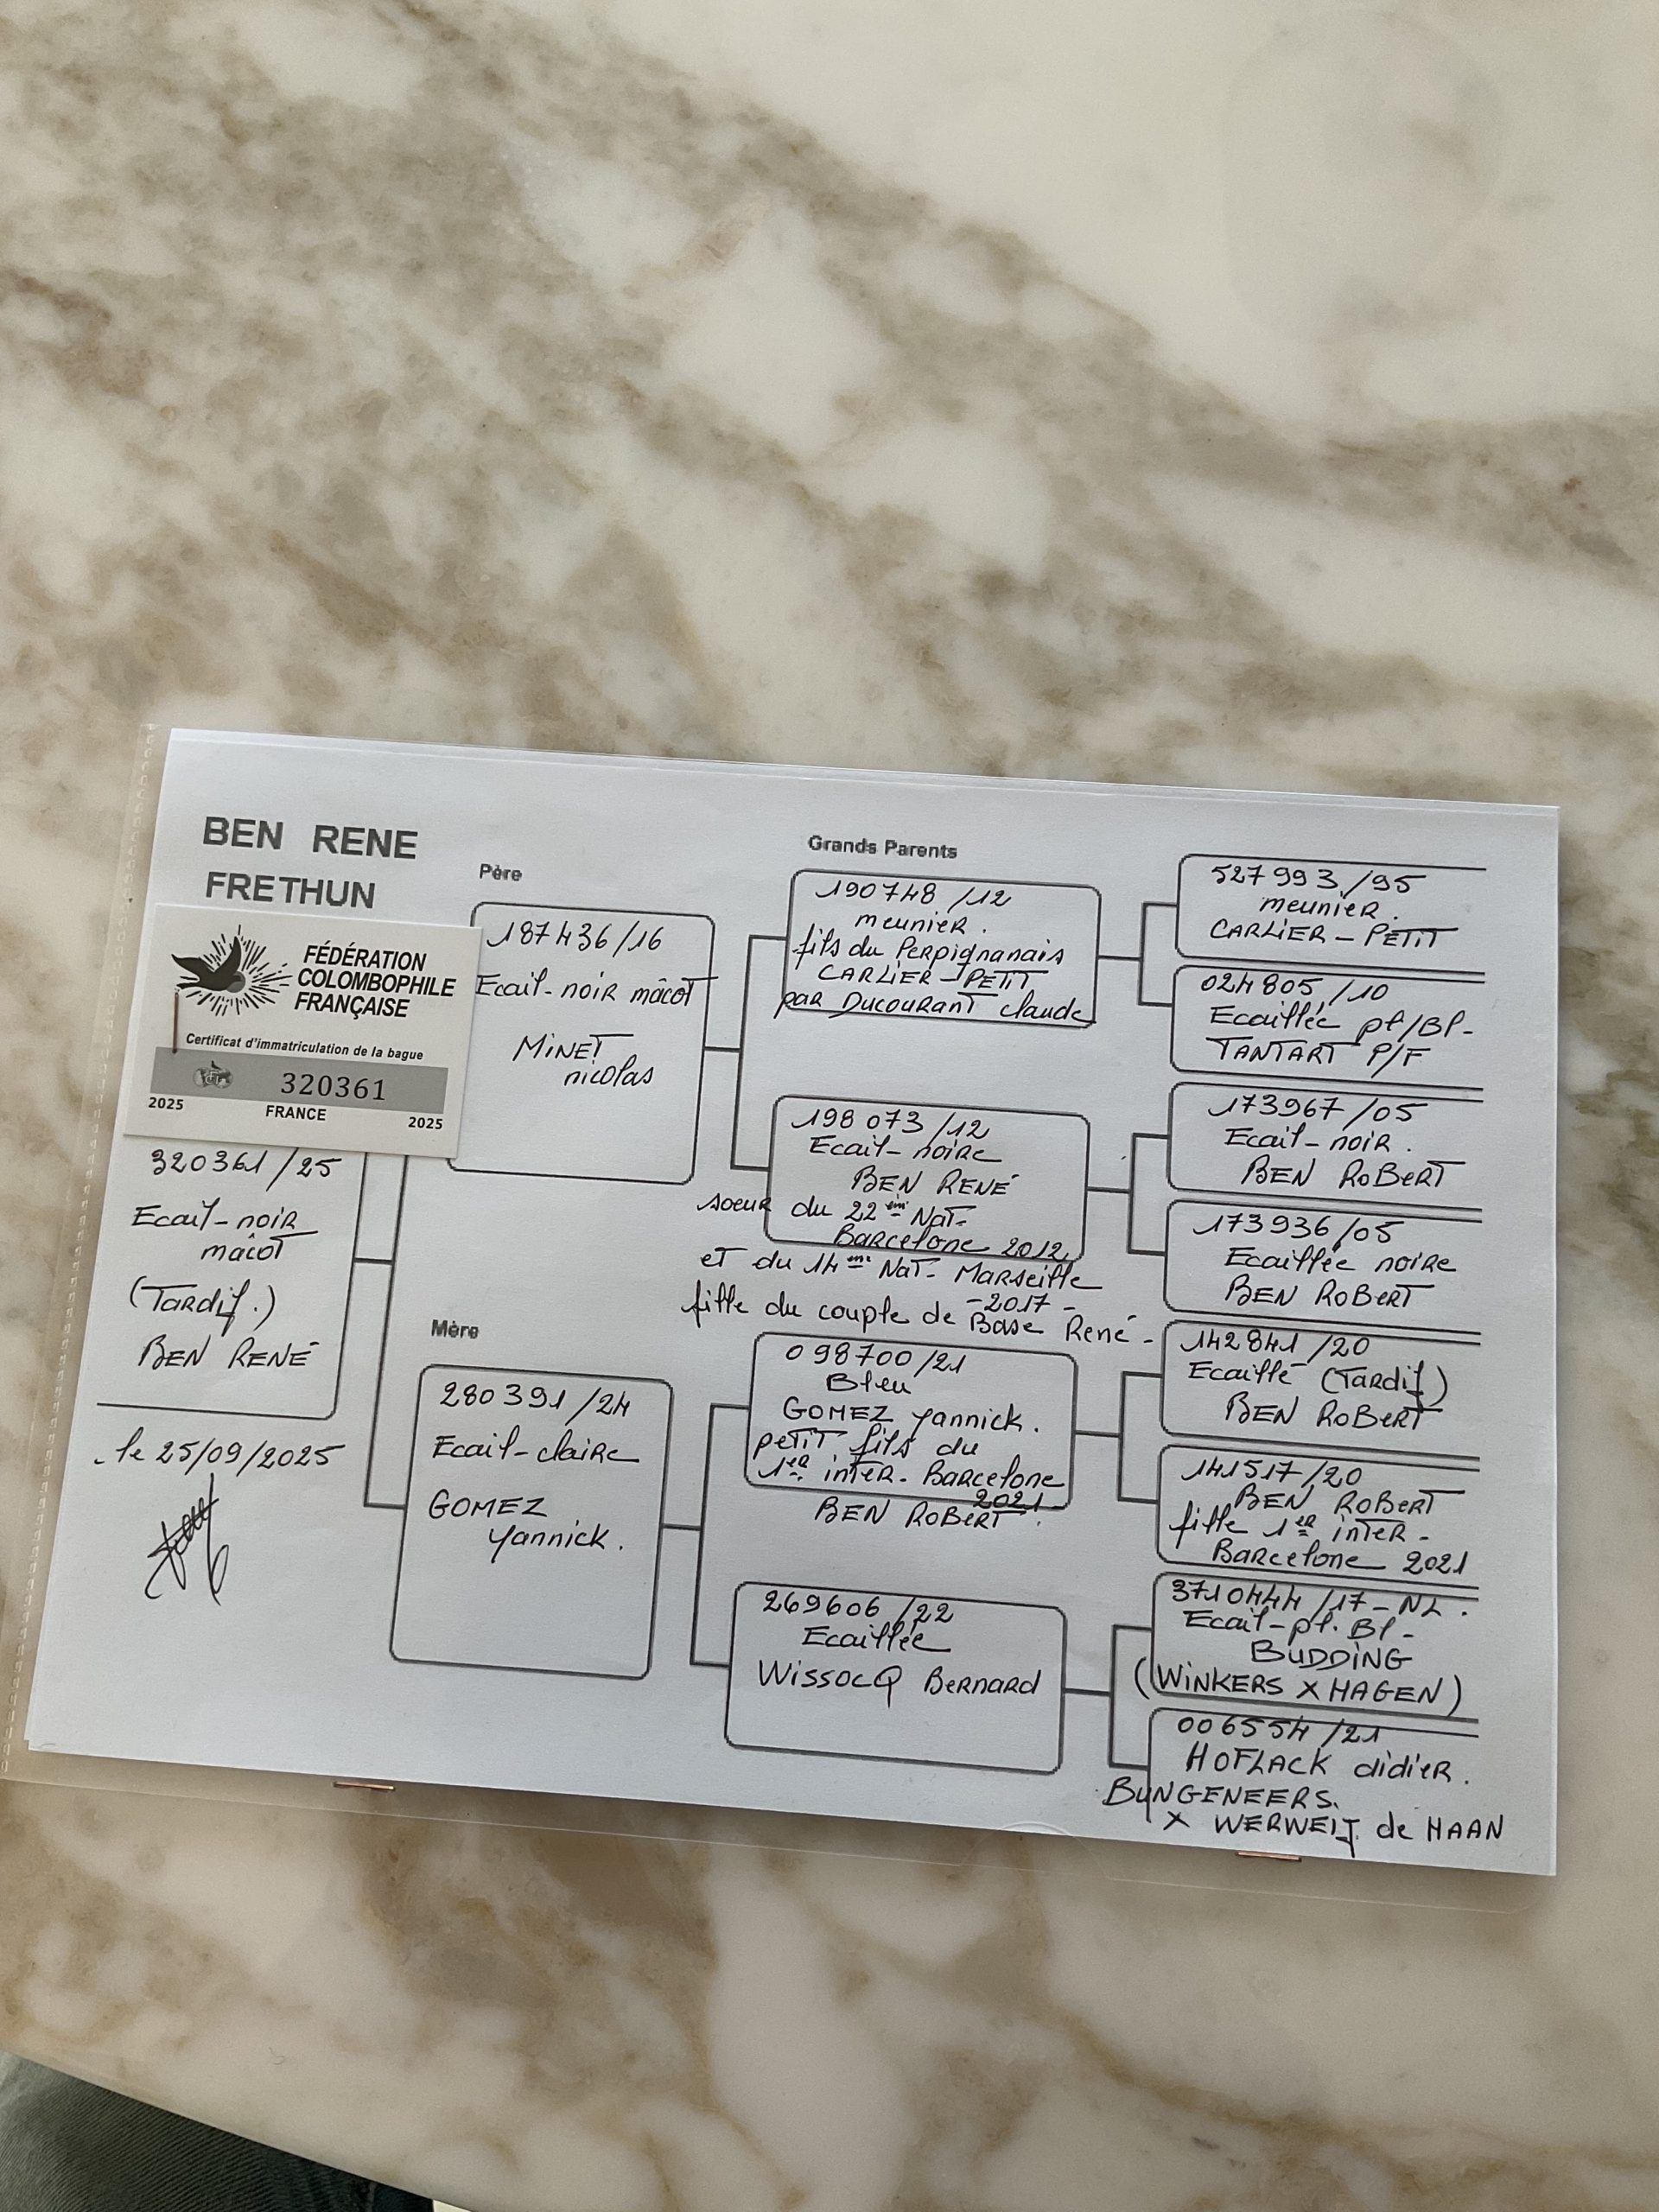 BEN RENE
FRETHUN
FÉDÉRATION
COLOMBOPHILE
FRANÇAISE
Certificat d'immatriculation de la bague
320361
2025
FRANCE
2025
320361/25
Ecail-noir
mâcot
(Tardif.)
BEN RENÉ
le 25/09/2025
Père
187436/16
Ecail-noir mâcot
MiNET
nicolas
Mère
280391/24
Ecail-claire
GOMEZ
yannick.
Grands Parents
190748/12
meunier.
fils du Perpignanais
CARLIER-PETIT
par DUCOURANT claude
198073/12
Ecail-noire
BEN RENÉ
soeur du 22ème NAT-
Barcelone 2012
et du 14ème NAT- Marseille
-2017-
fille du couple de Base René-
098700/21
Bleu
GOMEZ yannick.
petit fils du
1er inter-Barcelone
2021-
BEN ROBERT.
269606/22
Ecaillée
WISSOCQ Bernard
527993/95
meunier.
CARLIER-PETIT
024805/10
Ecaillée pl/Bl-
TANTART P/F
173967/05
Ecail-noir.
BEN ROBERT
173936/05
Ecaillée noire
BEN ROBERT
142841/20
Ecaillé (Tardif)
BEN ROBERT
141517/20
BEN ROBERT
fille 1er inter-
Barcelone 2021
3710444/17-NL.
Ecail-pl.Bl-
BUDDING
(WINKERS X HAGEN)
006554/21
HOFLACK didier.
BUNGENEERS.
X WERWEIJ. de HAAN